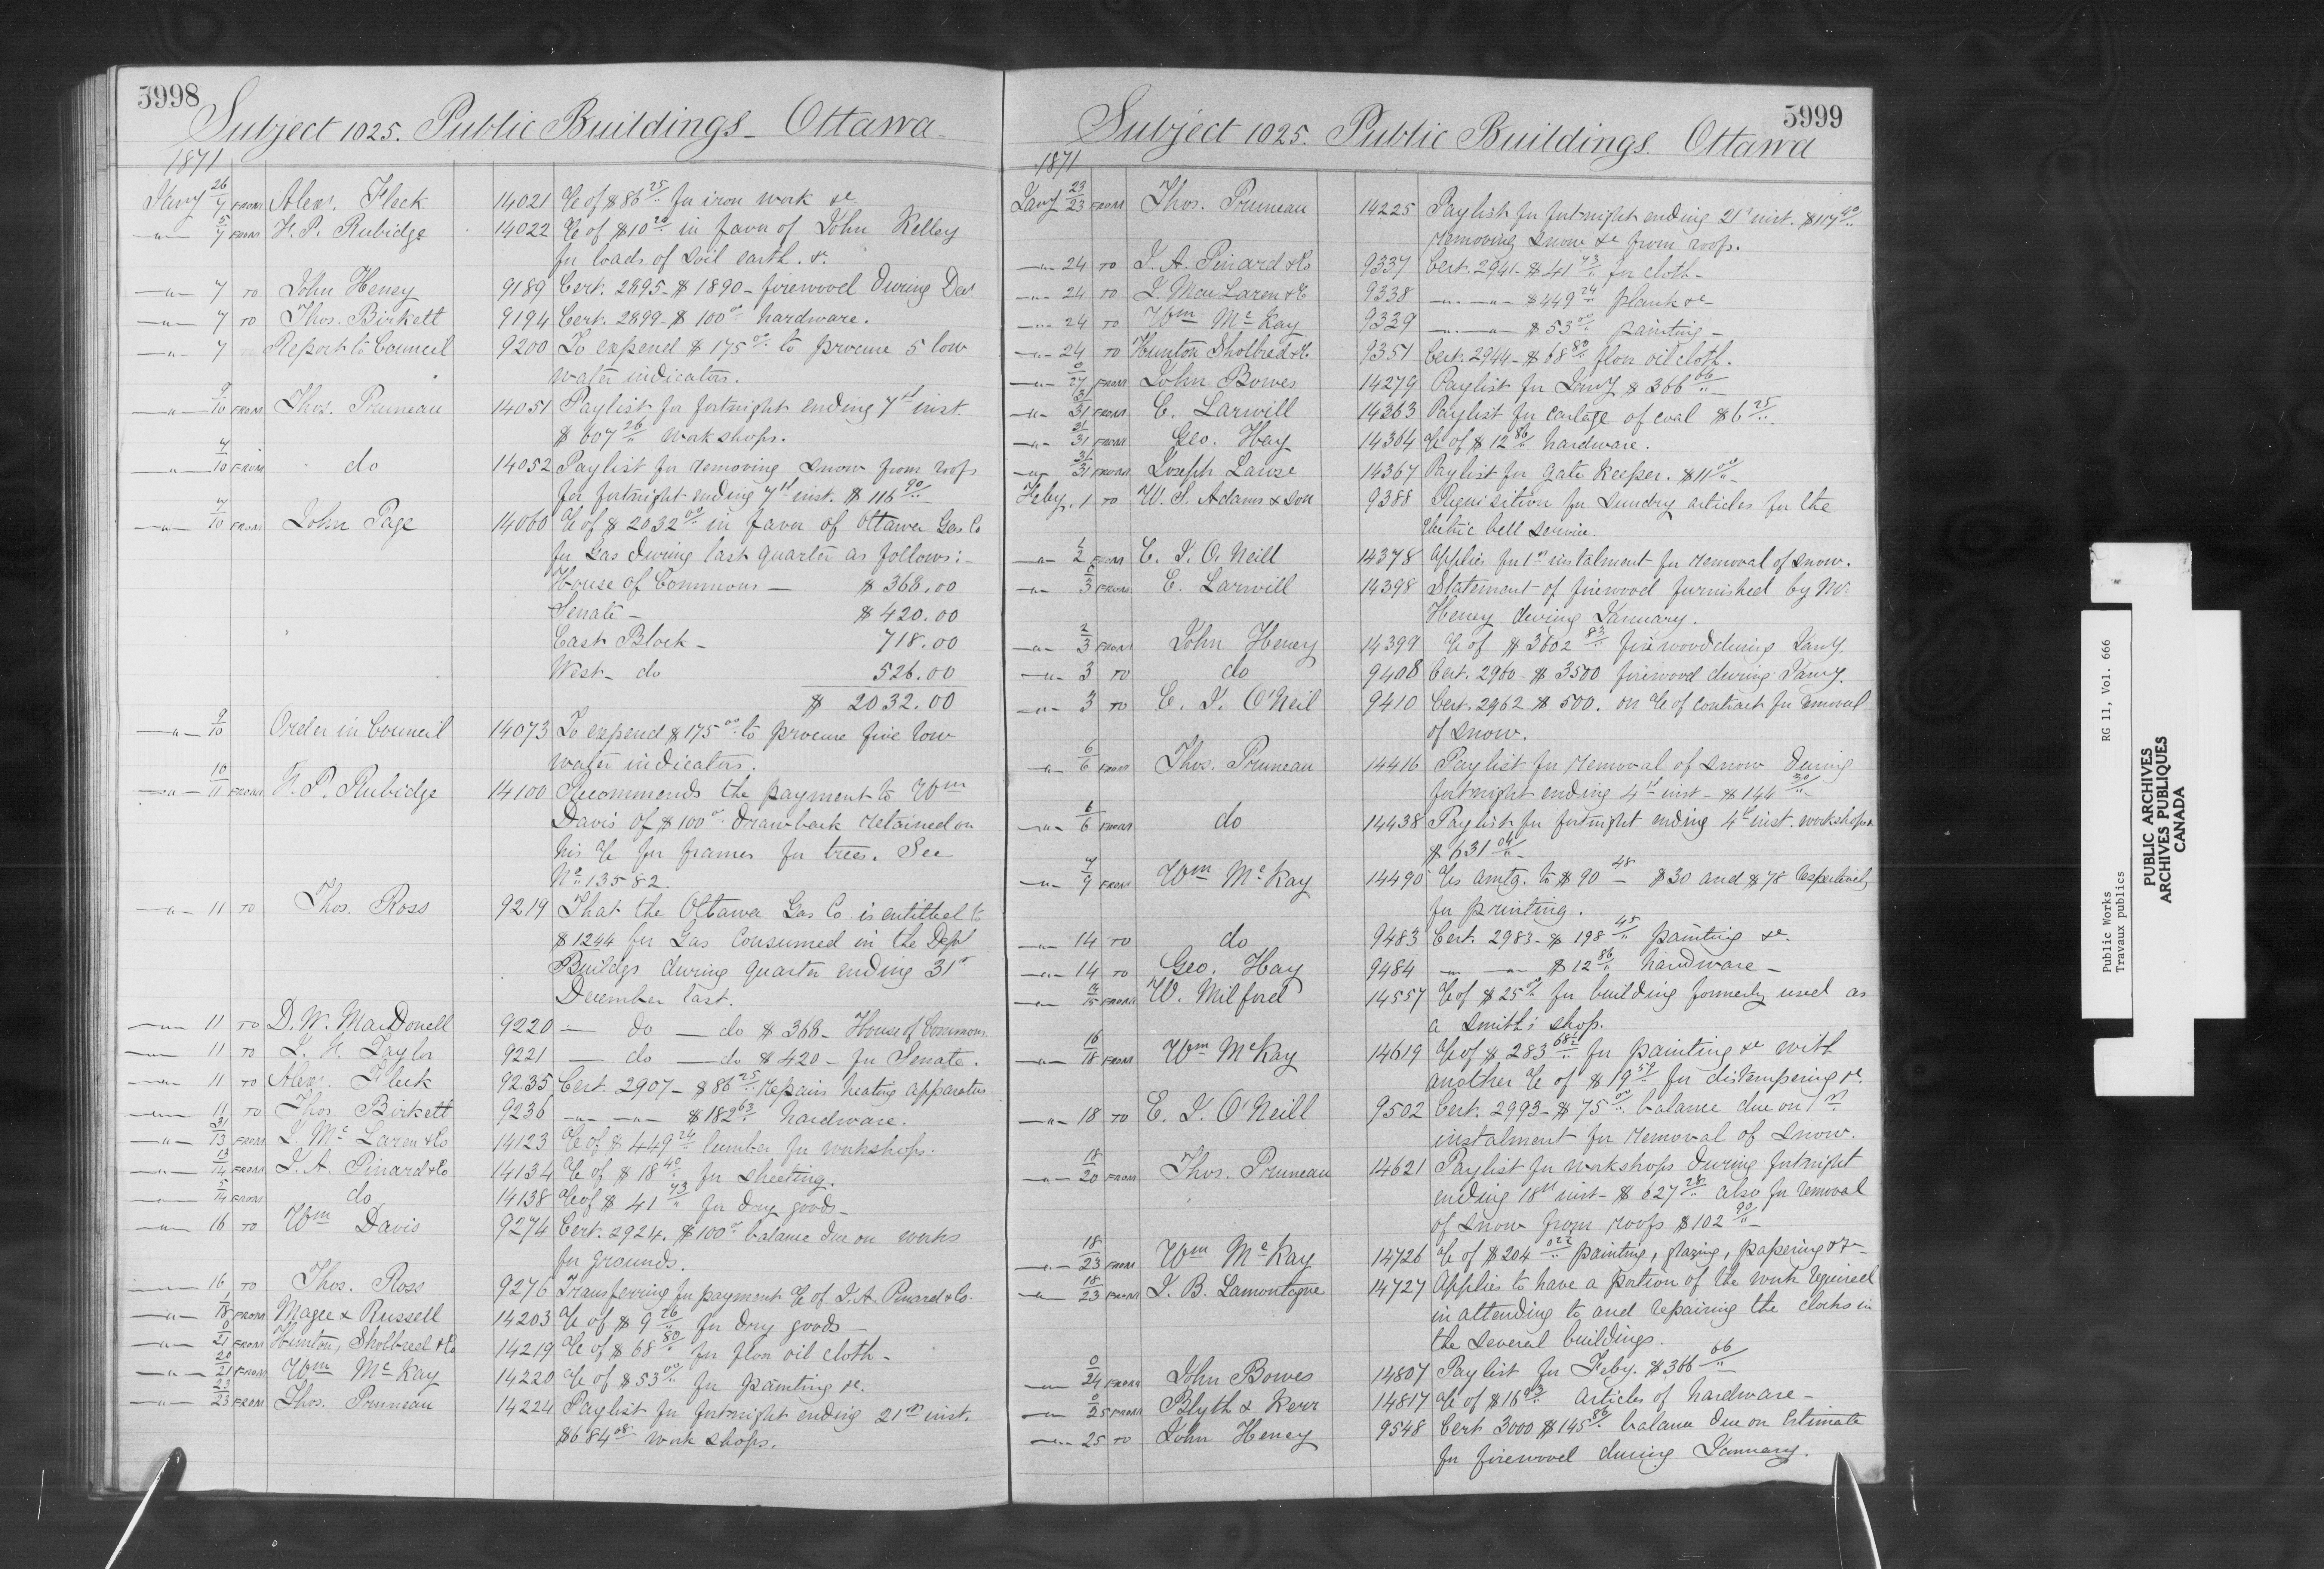 3998
Subject 1025. Public Buildings - Ottawa -
1871
Jany 26/7 FROM Alexr. Fleck 14021 a/c of $86 25/" for iron work &c.
-"- 5/7 FROM F. P. Rubidge 14022 a/c of $10 20/" in favor of John Kelley
for loads of soil earth. &c.
-"- 7 TO John Heney 9189 Cert. 2895 - $1890 - firewood during Decr
-"- 7 TO Thos. Birkett 9194 Cert. 2899 - $100 00/" hardware.
-"- 7 Report to Council 9200 To expend $175 00/" to procure 5 low
water indicators.
-"- 9/10 FROM Thos. Pruneau 14051 Paylist for fortnight ending 7th inst.
$607 26/" workshops.
-"- 7/10 FROM do 14052 Paylist for removing snow from roofs
for fortnight ending 7th inst. $116 90/"
-"- 7/10 FROM John Page 14060 a/c of $2032 00/" in favor of Ottawa Gas Co
for Gas during last quarter as follows:-
House of Commons - $368.00
Senate - $420.00
East Block - 718.00
West - do 526.00
$ 2032.00
-"- 9/10 Order in Council 14073 To expend $175 00/" to procure five low
water indicators.
-"- 10/11 FROM F. P. Rubidge 14100 Recommends the payment to Wm
Davis of $100 00/" drawback retained on
his a/c for frames for trees. See
No. 13582.
-"- 11 TO Thos. Ross 9219 That the Ottawa Gas Co is entitled to
$1244 for Gas consumed in the Deptl
Buildgs during quarter ending 31st
December last.
-"- 11 TO D. W. MacDonell 9220 - do - do $368 - House of Commons.
-"- 11 TO J. F. Taylor 9221 - do - do $420 - for Senate.
-"- 11 TO Alexr. Fleck 9235 Cert. 2907 - $86 25/" repairs heating apparatus
-"- 11 TO Thos. Birkett 9236 -"- -"- $182 63/" hardware.
-"- 31/13 FROM J. McLaren & Co 14123 a/c of $449 24/" lumber for workshops.
-"- 13/14 FROM J. A. Pinard & Co 14134 a/c of $18 40/" for sheeting.
-"- 5/14 FROM do 14138 a/c of $41 73/" for dry goods -
-"- 16 TO Wm Davis 9274 Cert. 2924. $100 00/" balance due on works
for grounds.
-"- 16 TO Thos. Ross 9276 Transferring for payment a/c of J. A. Pinard & Co.
-"- 1/18 FROM Magee & Russell 14203 a/c of $9 26/" for dry goods -
-"- 0/21 FROM Hunton, Sholbred & Co 14219 a/c of $68 80/" for floor oil cloth -
-"- 20/21 FROM Wm McKay 14220 a/c of $53 00/" for painting &c.
-"- 23/23 FROM Thos. Pruneau 14224 Paylist for fortnight ending 21st inst.
$684 08/" work shops.
3999
Subject 1025. Public Buildings. Ottawa
1871
Jany 23/23 FROM Thos. Pruneau 14225 Paylist for fortnight ending 21st inst. $117 90/"
removing snow &c from roofs.
-"- 24 TO J. A. Pinard & Co 9337 Cert. 2941 - $41 73/" for cloth -
-"- 24 TO J. MacLaren & Co 9338 -"- -"- $449 24/" plank &c -
-"- 24 TO Wm McKay 9339 -"- -"- $53 00/" painting -
-"- 24 TO Hunton Sholbred & Co 9351 Cert. 2944 - $68 80/" floor oil cloth.
-"- 0/27 FROM John Bowes 14279 Paylist for Jany $366 66/"
-"- 31/31 FROM E. Larwill 14363 Paylist for cartage of coal $6 25/"
-"- 21/31 FROM Geo. Hay 14364 a/c of $12 86/" hardware.
-"- 31/31 FROM Joseph Lawse 14367 Paylist for Gate Keeper. $11 00/" -
Feby. 1 TO W. S. Adams & Son 9388 Requisition for sundry articles for the
electric bell service.
-"- 1/2 FROM E. J. O'Neill 14378 Applies for 1st instalment for removal of snow.
-"- 3 FROM E. Larwill 14398 Statement of firewood furnished by Mr
Heney during January.
-"- 2/3 FROM John Heney 14399 a/c of $3602 83/" firewood during Jany
-"- 3 TO do 9408 Cert. 2960 - $3500 firewood during Jany.
-"- 3 TO E. J. O'Neil 9410 Cert. 2962 $500. on a/c of contract for removal
of snow.
-"- 6/6 FROM Thos. Pruneau 14416 Paylist for removal of snow during
fortnight ending 4th inst - $144 30/" -
-"- 6/6 FROM do 14438 Paylist for fortnight ending 4th inst. workshops
$631 04/" -
-"- 7/9 FROM Wm McKay 14490 a/cs amtg. to $90 48/" $30 and $78 respectively
for printing.
-"- 14 TO do 9483 Cert. 2983 - $198 45/" painting &c.
-"- 14 TO Geo. Hay 9484 -"- -"- $12 86/" hardware -
-"- 14/15 FROM W. Milford 14557 a/c of $25 00/" for building formerly used as
a smith's shop.
-"- 16/18 FROM Wm McKay 14619 a/c of $283 68½/" for painting &c with
another a/c of $19 50/" for distempering &c.
-"- 18 TO E. J. O'Neill 9502 Cert. 2993 - $75 00/" balance due on 1st
instalment for removal of snow.
-"- 18/20 FROM Thos. Pruneau 14621 Paylist for workshops during fortnight
ending 18th inst - $627 28/" also for removal
of snow from roofs $102 90/" -
-"- 18/23 FROM Wm McKay 14726 a/c of $204 02½/" painting, glazing, papering &c -
-"- 18/23 FROM J. B. Lamontagne 14727 Applies to have a portion of the work required
in attending to and repairing the clocks in
the several buildings.
-"- 0/24 FROM John Bowes 14807 Paylist for Feby. $366 66/"
-"- 0/25 FROM Blyth & Kerr 14817 a/c of $16 93/" articles of hardware -
-"- 25 TO John Heney 9548 Cert 3000 $145 86/" balance due on Estimate
for firewood during January.
Public Works RG 11, Vol. 666
Travaux publics
PUBLIC ARCHIVES
ARCHIVES PUBLIQUES
CANADA